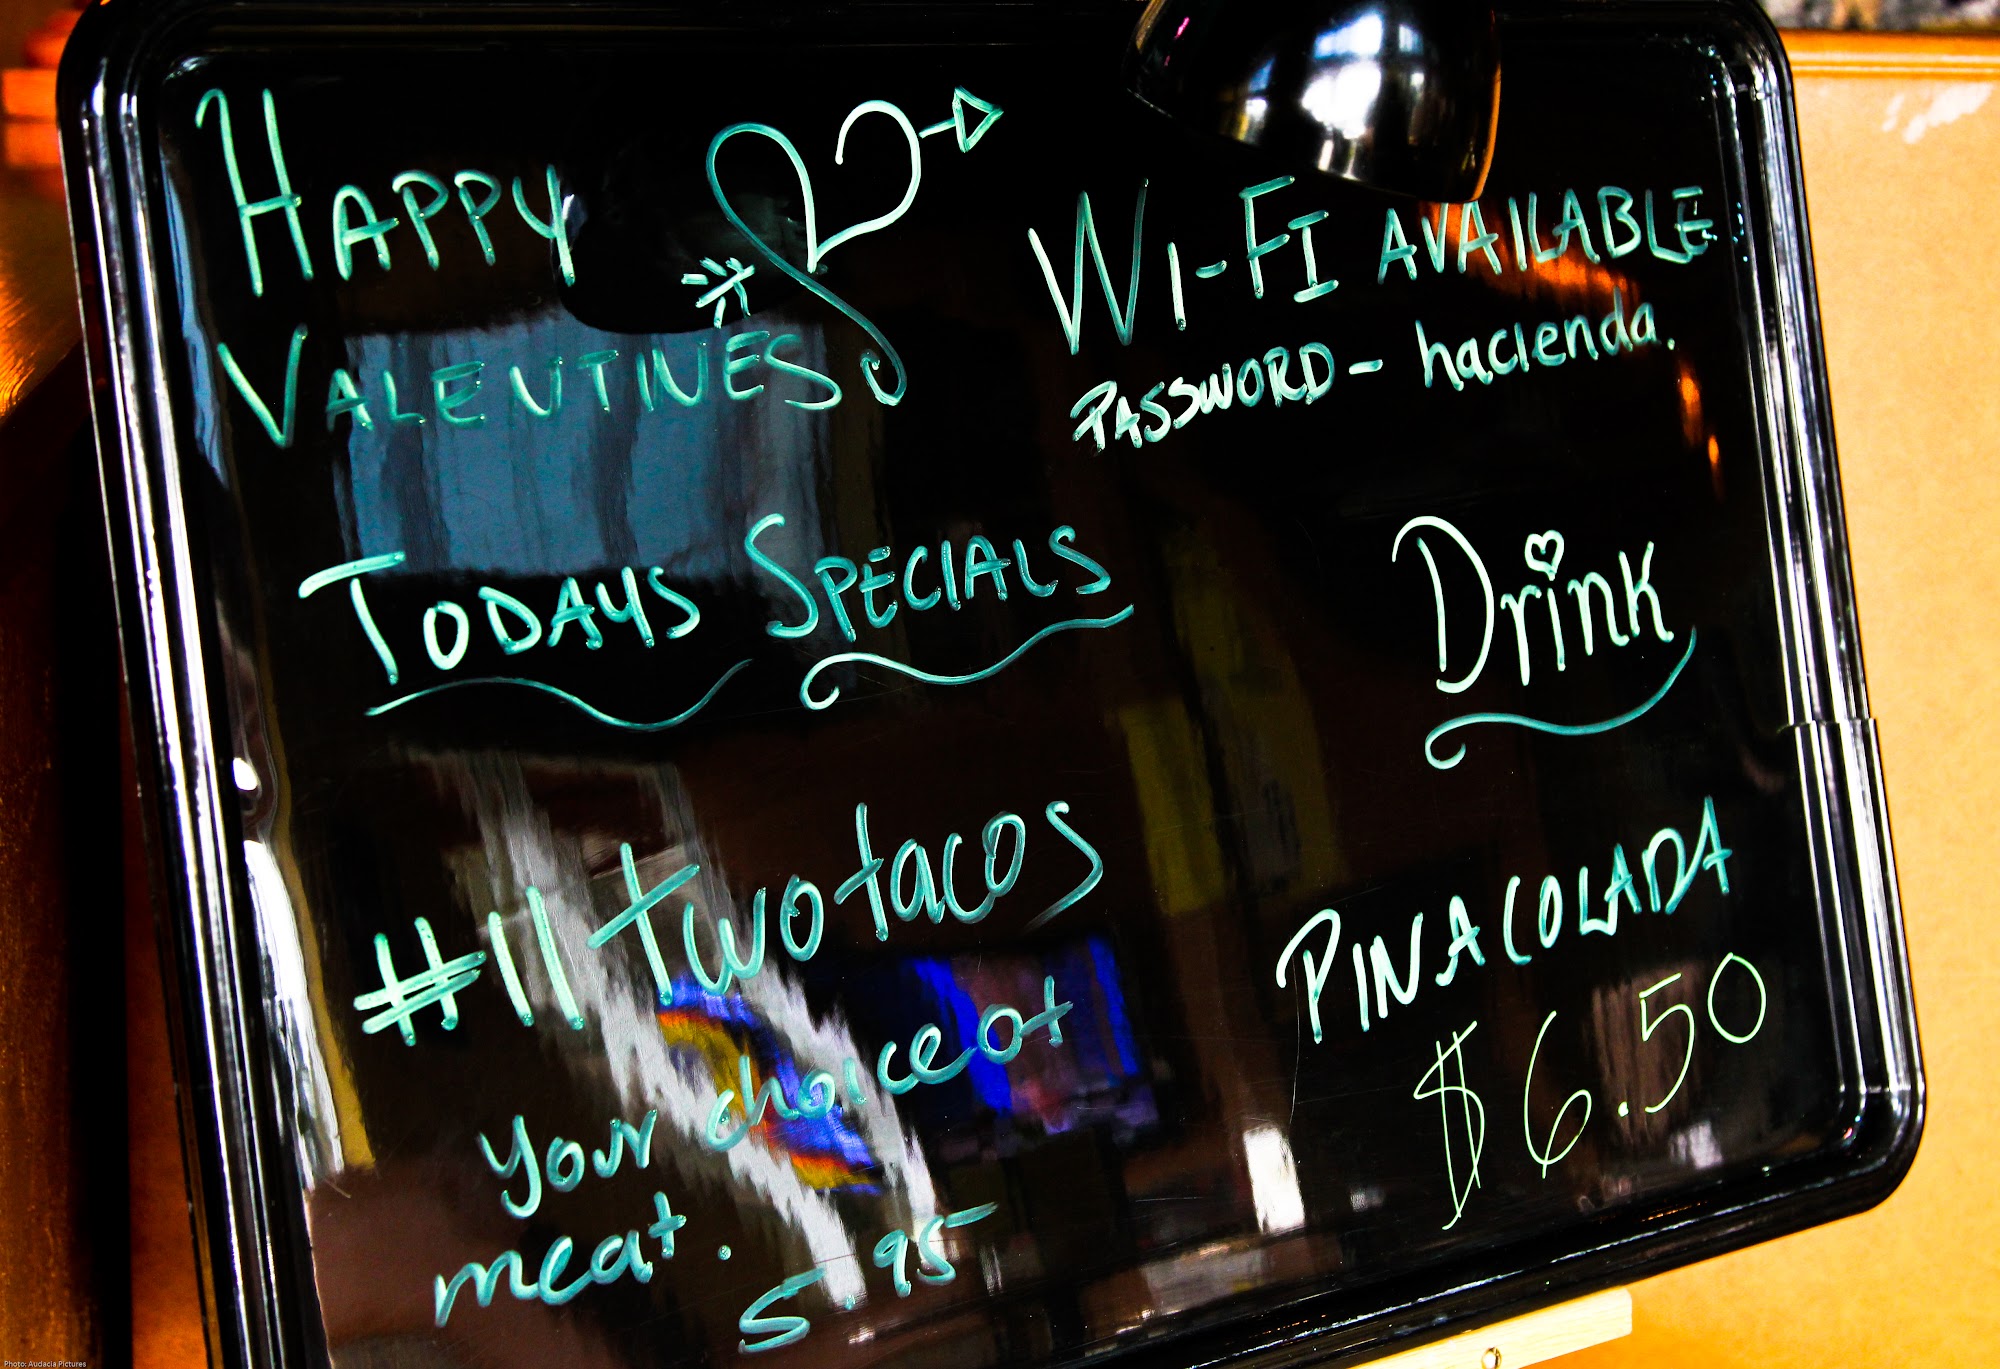 HAPPY
VALENTINES
WI-FI AVAILABLE
PASSWORD - hacienda.
TODAYS SPECIALS
#11 two tacos
your choice of
meat.
5.95
Drink
PINA COLADA
$6.50
Photo: Audacia Pictures